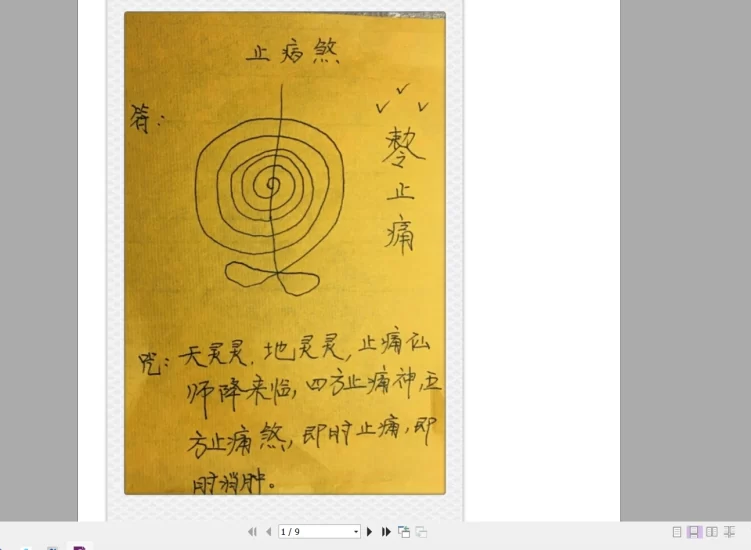 止病煞
符：
敕令
止
痛
咒：天灵灵，地灵灵，止痛
师降来临，四方止痛神，五
方止痛煞，即时止痛，即
时消肿。
1 / 9